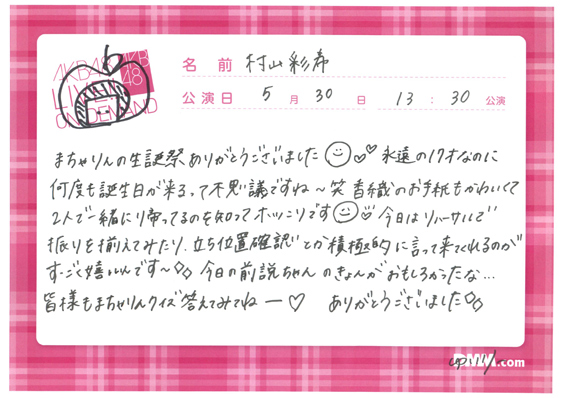 AKB48
LIVE!!
ON DEMAND
AKB
48
名 前 村山彩希
公演日 5 月 30 日 13 : 30 公演
まちゃりんの生誕祭ありがとうございました 永遠の17才なのに
何度も誕生日が来るって不思議ですね〜笑 香織のお手紙もかわいくて
2人で一緒に帰ってるのを知ってホッコリです 今日はリハーサルで
振りを揃えてみたり、立ち位置確認とか積極的に言って来てくれるのが
すーごく嬉しいんです〜 今日の前説ちゃんのきょんがおもしろかったな...
皆様もまちゃりんクイズ答えてみてねー♡ ありがとうございました
DMM.com